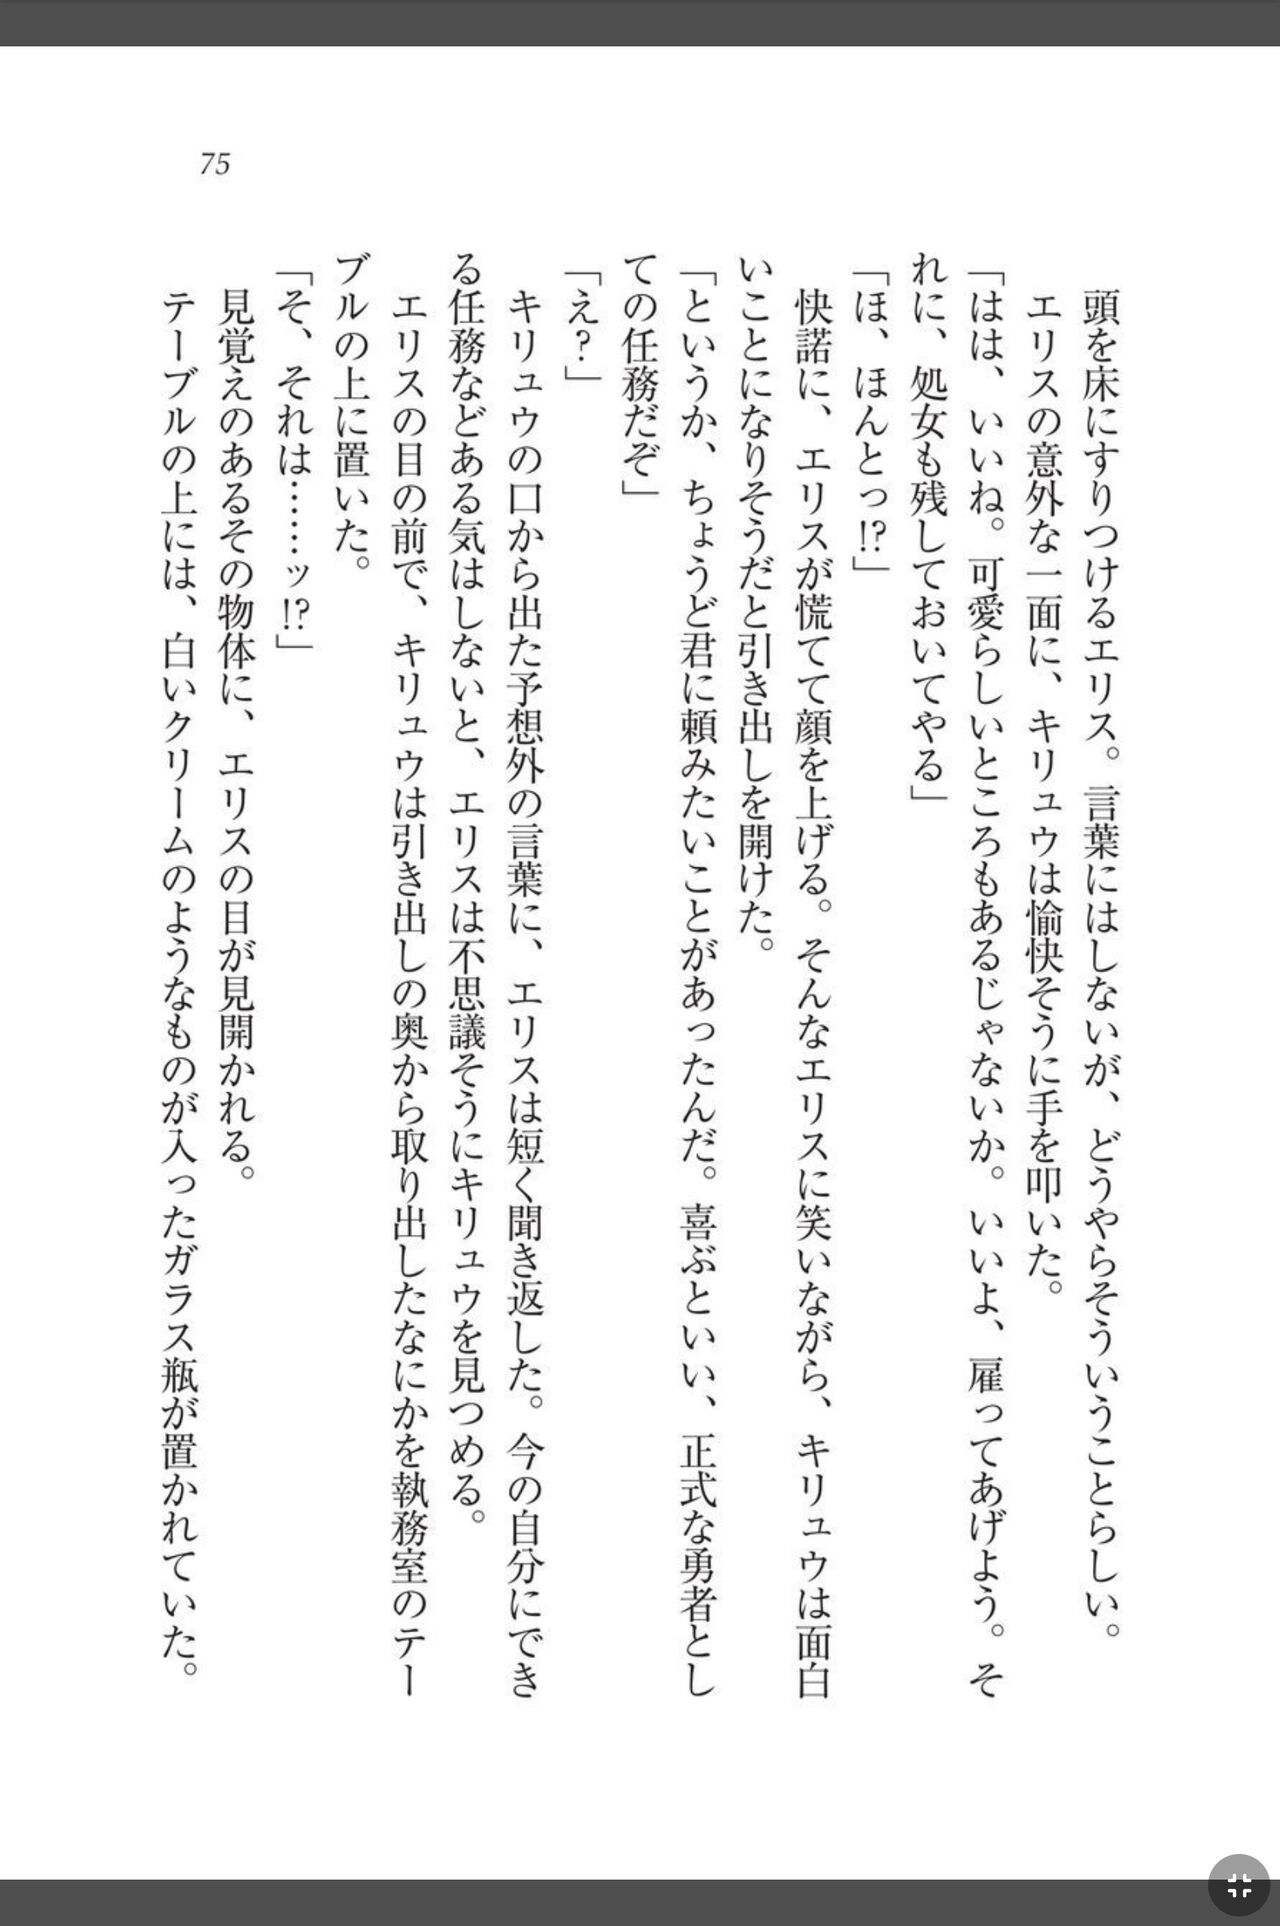 75
頭を床にすりつけるエリス。言葉にはしないが、どうやらそういうことらしい。
エリスの意外な一面に、キリュウは愉快そうに手を叩いた。
「はは、いいね。可愛らしいところもあるじゃないか。いいよ、雇ってあげよう。そ
れに、処女も残しておいてやる」
「ほ、ほんとっ!?」
快諾に、エリスが慌てて顔を上げる。そんなエリスに笑いながら、キリュウは面白
いことになりそうだと引き出しを開けた。
「というか、ちょうど君に頼みたいことがあったんだ。喜ぶといい、正式な勇者とし
ての任務だぞ」
「え?」
キリュウの口から出た予想外の言葉に、エリスは短く聞き返した。今の自分にでき
る任務などある気はしないと、エリスは不思議そうにキリュウを見つめる。
エリスの目の前で、キリュウは引き出しの奥から取り出したなにかを執務室のテー
ブルの上に置いた。
「そ、それは……ッ!?」
見覚えのあるその物体に、エリスの目が見開かれる。
テーブルの上には、白いクリームのようなものが入ったガラス瓶が置かれていた。